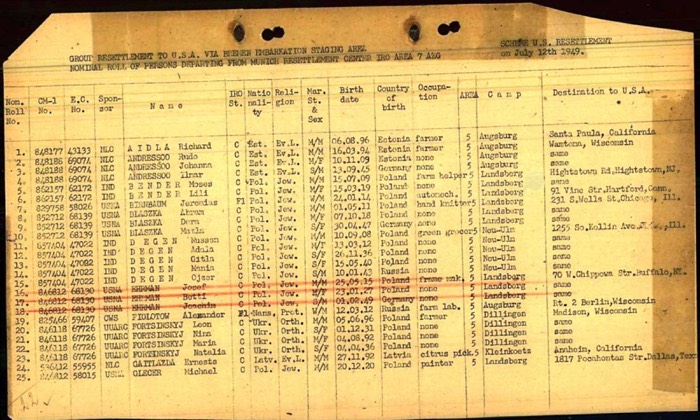 GROUP RESETTLEMENT TO U.S.A. VIA BREMEN EMBARKATION STAGING AREA
NOMINAL ROLL OF PERSONS DEPARTING FROM MUNICH RESETTLEMENT CENTRE IRO AREA 7 AEG
SCHEME U.S. RESETTLEMENT
on July 12th 1949.
Nom. Roll No. CM-1 No. E.C. No. Spon- sor Name IRO St. Natio nali- ty Reli- gion Mar. St. & Sex Birth date Country of birth Occupa- tion AREA Camp Destination to U.S.A.
1. 848177 43133 NLC AIDLA Richard C Est. Ev.L. M/M 06.08.96 Estonia farmer 5 Augsburg Santa Paula, California
2. 848188 69074 NLC ANDRESSOO Rudo C Est. Ev.L. M/M 16.03.94 Estonia farmer 5 Augsburg Wisconsin
3. 848188 69074 NLC ANDRESSOO Johanna C Est. Ev.L. M/F 10.11.09 Estonia none 5 Augsburg same
4. 848188 69074 NLC ANDRESSOO Ilmar C Est. Ev.L. S/M 13.09.45 Germany none 5 Augsburg same
5. 862157 62172 IND BENDER Moses C Pol. Jew. M/M 15.07.09 Poland farm helper 5 Landsberg Hightstown Rd,Hightstown,NJ.
6. 862157 62172 IND BENDER Lili C Pol. Jew. M/F 15.03.19 Poland none 5 Landsberg same
7. 829758 58026 USNA BIRNBAUM Jeremias Fl Pol. Jew. 24.01.14 Poland automech. 5 Landsberg 91 Vine Str.Hartford,Conn.
8. 852712 68139 USNA BLASZKA Abram C Pol. Jew. M/M 01.05.11 Poland hand knitter 5 Landsberg 231 S.Wells St.Chicago, Ill.
9. 852712 68139 USNA BLASZKA Dora C Pol. Jew. M/F 07.10.18 Poland none 5 Landsberg same
10. 852712 68139 USNA BLASZKA C Pol. Jew. S/F 30.04.47 Germany none 5 Landsberg same
11. 857404 47022 IND DEGEN Musson C Pol. Jew. M/M 10.09.08 Poland green grocer 5 Neu-Ulm 1255 So.Kollin Ave. Ill.
12. 857404 47022 IND DEGEN C Pol. Jew. M/F 13.03.12 Poland none 5 Neu-Ulm same
13. 857404 47022 IND DEGEN Gitla C Pol. Jew. S/F 26.11.36 Poland none 5 Neu-Ulm same
14. 857404 47022 IND DEGEN Mania C Pol. Jew. S/F 15.05.40 Poland none 5 Neu-Ulm same
15. 857404 47022 IND DEGEN Ojzer C Pol. Jew. S/M 10.01.43 Russia none 5 Neu-Ulm same
16. 846812 68130 USNA EHRMAN Josef C Pol. Jew. M/M 25.05.15 Poland frame mak. 5 Landsberg 70 W.Chippewa Str.Buffalo,NY.
17. 846812 68130 USNA EHRMAN Betti C Pol. Jew. M/F 23.01.27 Poland none 5 Landsberg same
18. 846812 68130 USNA EHRMAN Joachim C Pol. Jew. S/M 01.02.49 Germany none 5 Landsberg same
19. 829466 59407 CWS FIDLOTOW Alexander Fl-Nans. Prot. M/M 12.03.12 Russia farm lab. 5 Augsburg Rt. 2 Berlin,Wisconsin
20. 846118 67726 UUARC FORTSINSKYJ Leon C Ukr. Orth. M/M 05.06.96 Poland farmer 5 Dillingen Madison, Wisconsin
21. 846118 67726 UUARC FORTSINSKYJ Nina C Ukr. Orth. S/F 01.12.31 Poland none 5 Dillingen same
22. 846118 67726 UUARC FORTSINSKYJ Maria C Ukr. Orth. M/F 04.08.92 Poland none 5 Dillingen same
23. 846118 67726 UUARC FORTSINSKYJ Natalia C Ukr. Orth. S/F 04.04.36 Poland none 5 Dillingen same
24. 536412 55955 NLC GATTLAZDA Ernests C Latv. Ev.L. M/M 27.11.92 Latvia citrus pick. 5 Kleinkoetz Anaheim, California
25. 846812 58015 USNA GLECER Michael C Pol. Jew. 20.12.20 Poland painter 5 Landsberg 1817 Pocahontas Str.Dallas,Texas